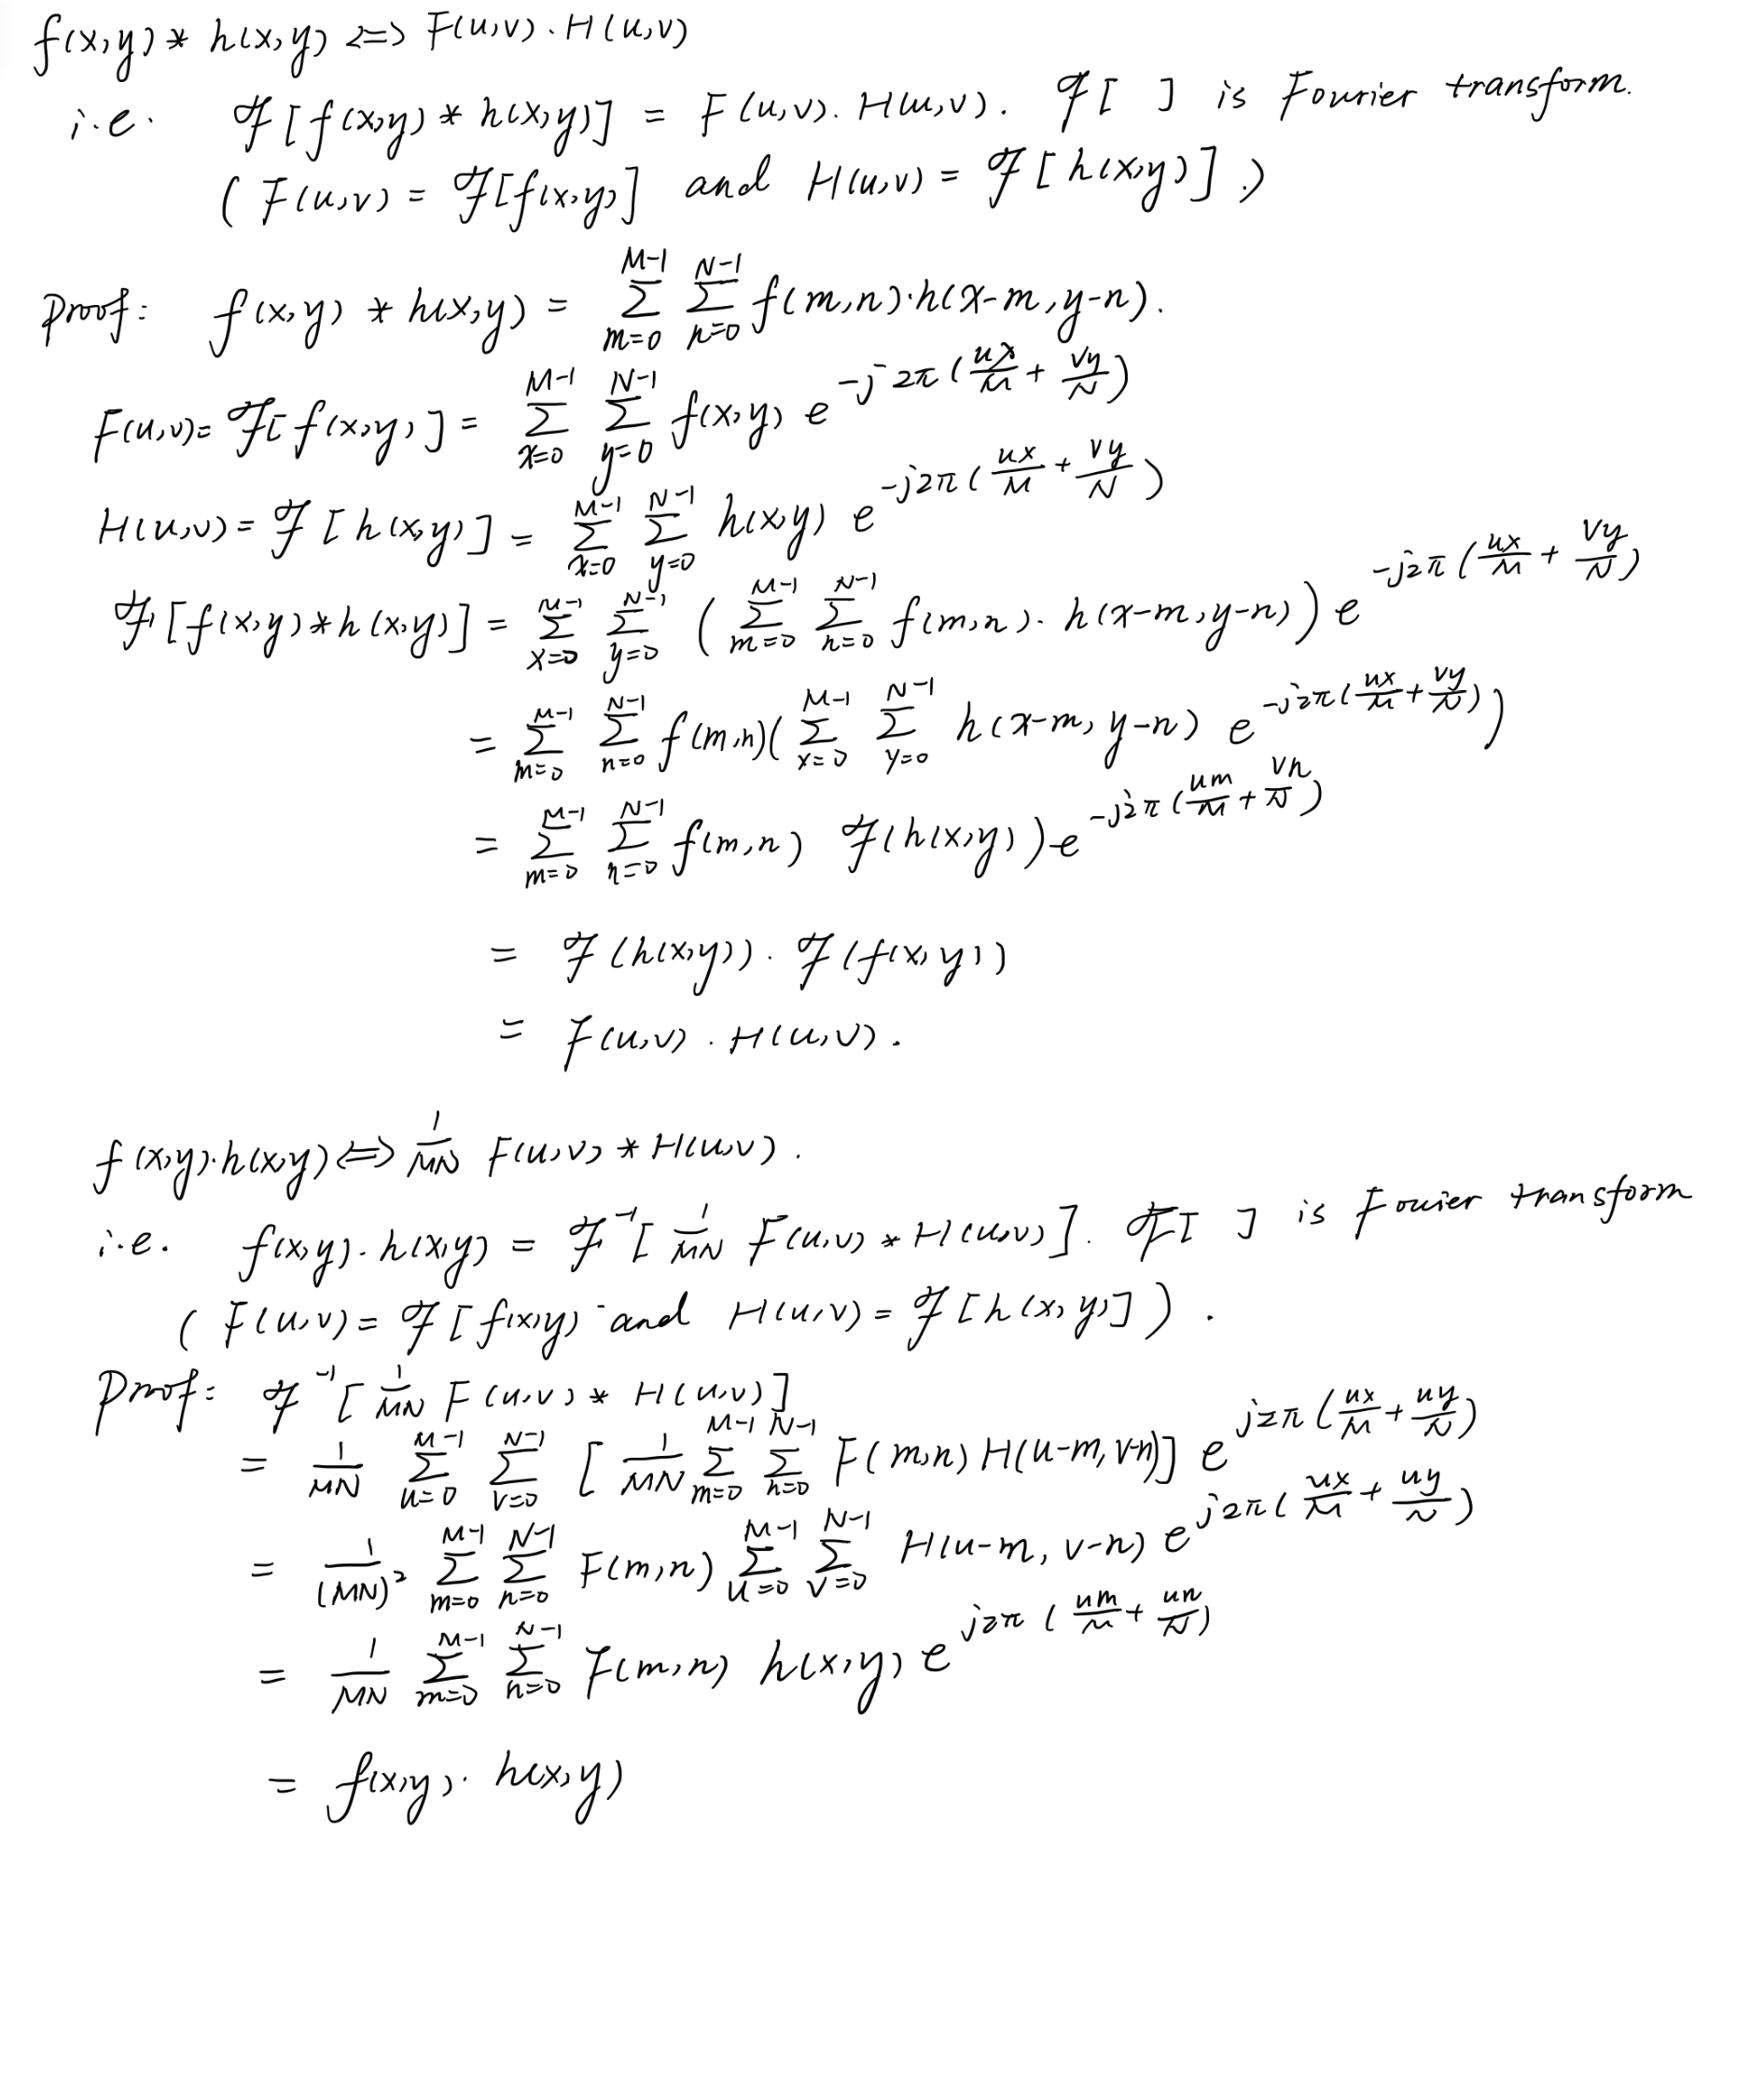 f(x,y) * h(x,y) <=> F(u,v) · H(u,v)
i.e. ℱ[f(x,y) * h(x,y)] = F(u,v). H(u,v). ℱ[ ] is Fourier transform.
( F(u,v) = ℱ[f(x,y)] and H(u,v) = ℱ[h(x,y)] .)
Proof: f(x,y) * h(x,y) = Σ_{m=0}^{M-1} Σ_{n=0}^{N-1} f(m,n)·h(x-m, y-n).
F(u,v) = ℱ[f(x,y)] = Σ_{x=0}^{M-1} Σ_{y=0}^{N-1} f(x,y) e^{-j2π(ux/M + vy/N)}
H(u,v) = ℱ[h(x,y)] = Σ_{x=0}^{M-1} Σ_{y=0}^{N-1} h(x,y) e^{-j2π(ux/M + vy/N)}
ℱ[f(x,y) * h(x,y)] = Σ_{x=0}^{M-1} Σ_{y=0}^{N-1} (Σ_{m=0}^{M-1} Σ_{n=0}^{N-1} f(m,n)· h(x-m, y-n)) e^{-j2π(ux/M + vy/N)}
= Σ_{m=0}^{M-1} Σ_{n=0}^{N-1} f(m,n)(Σ_{x=0}^{M-1} Σ_{y=0}^{N-1} h(x-m, y-n) e^{-j2π(ux/M + vy/N)})
= Σ_{m=0}^{M-1} Σ_{n=0}^{N-1} f(m,n) ℱ(h(x,y)) e^{-j2π(um/M + vn/N)}
= ℱ(h(x,y)) · ℱ(f(x,y))
= F(u,v) · H(u,v).
f(x,y)·h(x,y) <=> 1/MN F(u,v) * H(u,v).
i.e. f(x,y). h(x,y) = ℱ^{-1}[1/MN F(u,v) * H(u,v)]. ℱ[ ] is Fouier transform
( F(u,v) = ℱ[f(x,y) and H(u,v) = ℱ[h(x,y)] ) .
Proof: ℱ^{-1}[1/MN F(u,v) * H(u,v)]
= 1/MN Σ_{u=0}^{M-1} Σ_{v=0}^{N-1} [1/MN Σ_{m=0}^{M-1} Σ_{n=0}^{N-1} F(m,n) H(u-m, v-n)] e^{j2π(ux/M + uy/N)}
= 1/(MN)² Σ_{m=0}^{M-1} Σ_{n=0}^{N-1} F(m,n) Σ_{u=0}^{M-1} Σ_{v=0}^{N-1} H(u-m, v-n) e^{j2π(ux/M + uy/N)}
= 1/MN Σ_{m=0}^{M-1} Σ_{n=0}^{N-1} F(m,n) h(x,y) e^{j2π(um/M + un/N)}
= f(x,y)· h(x,y)